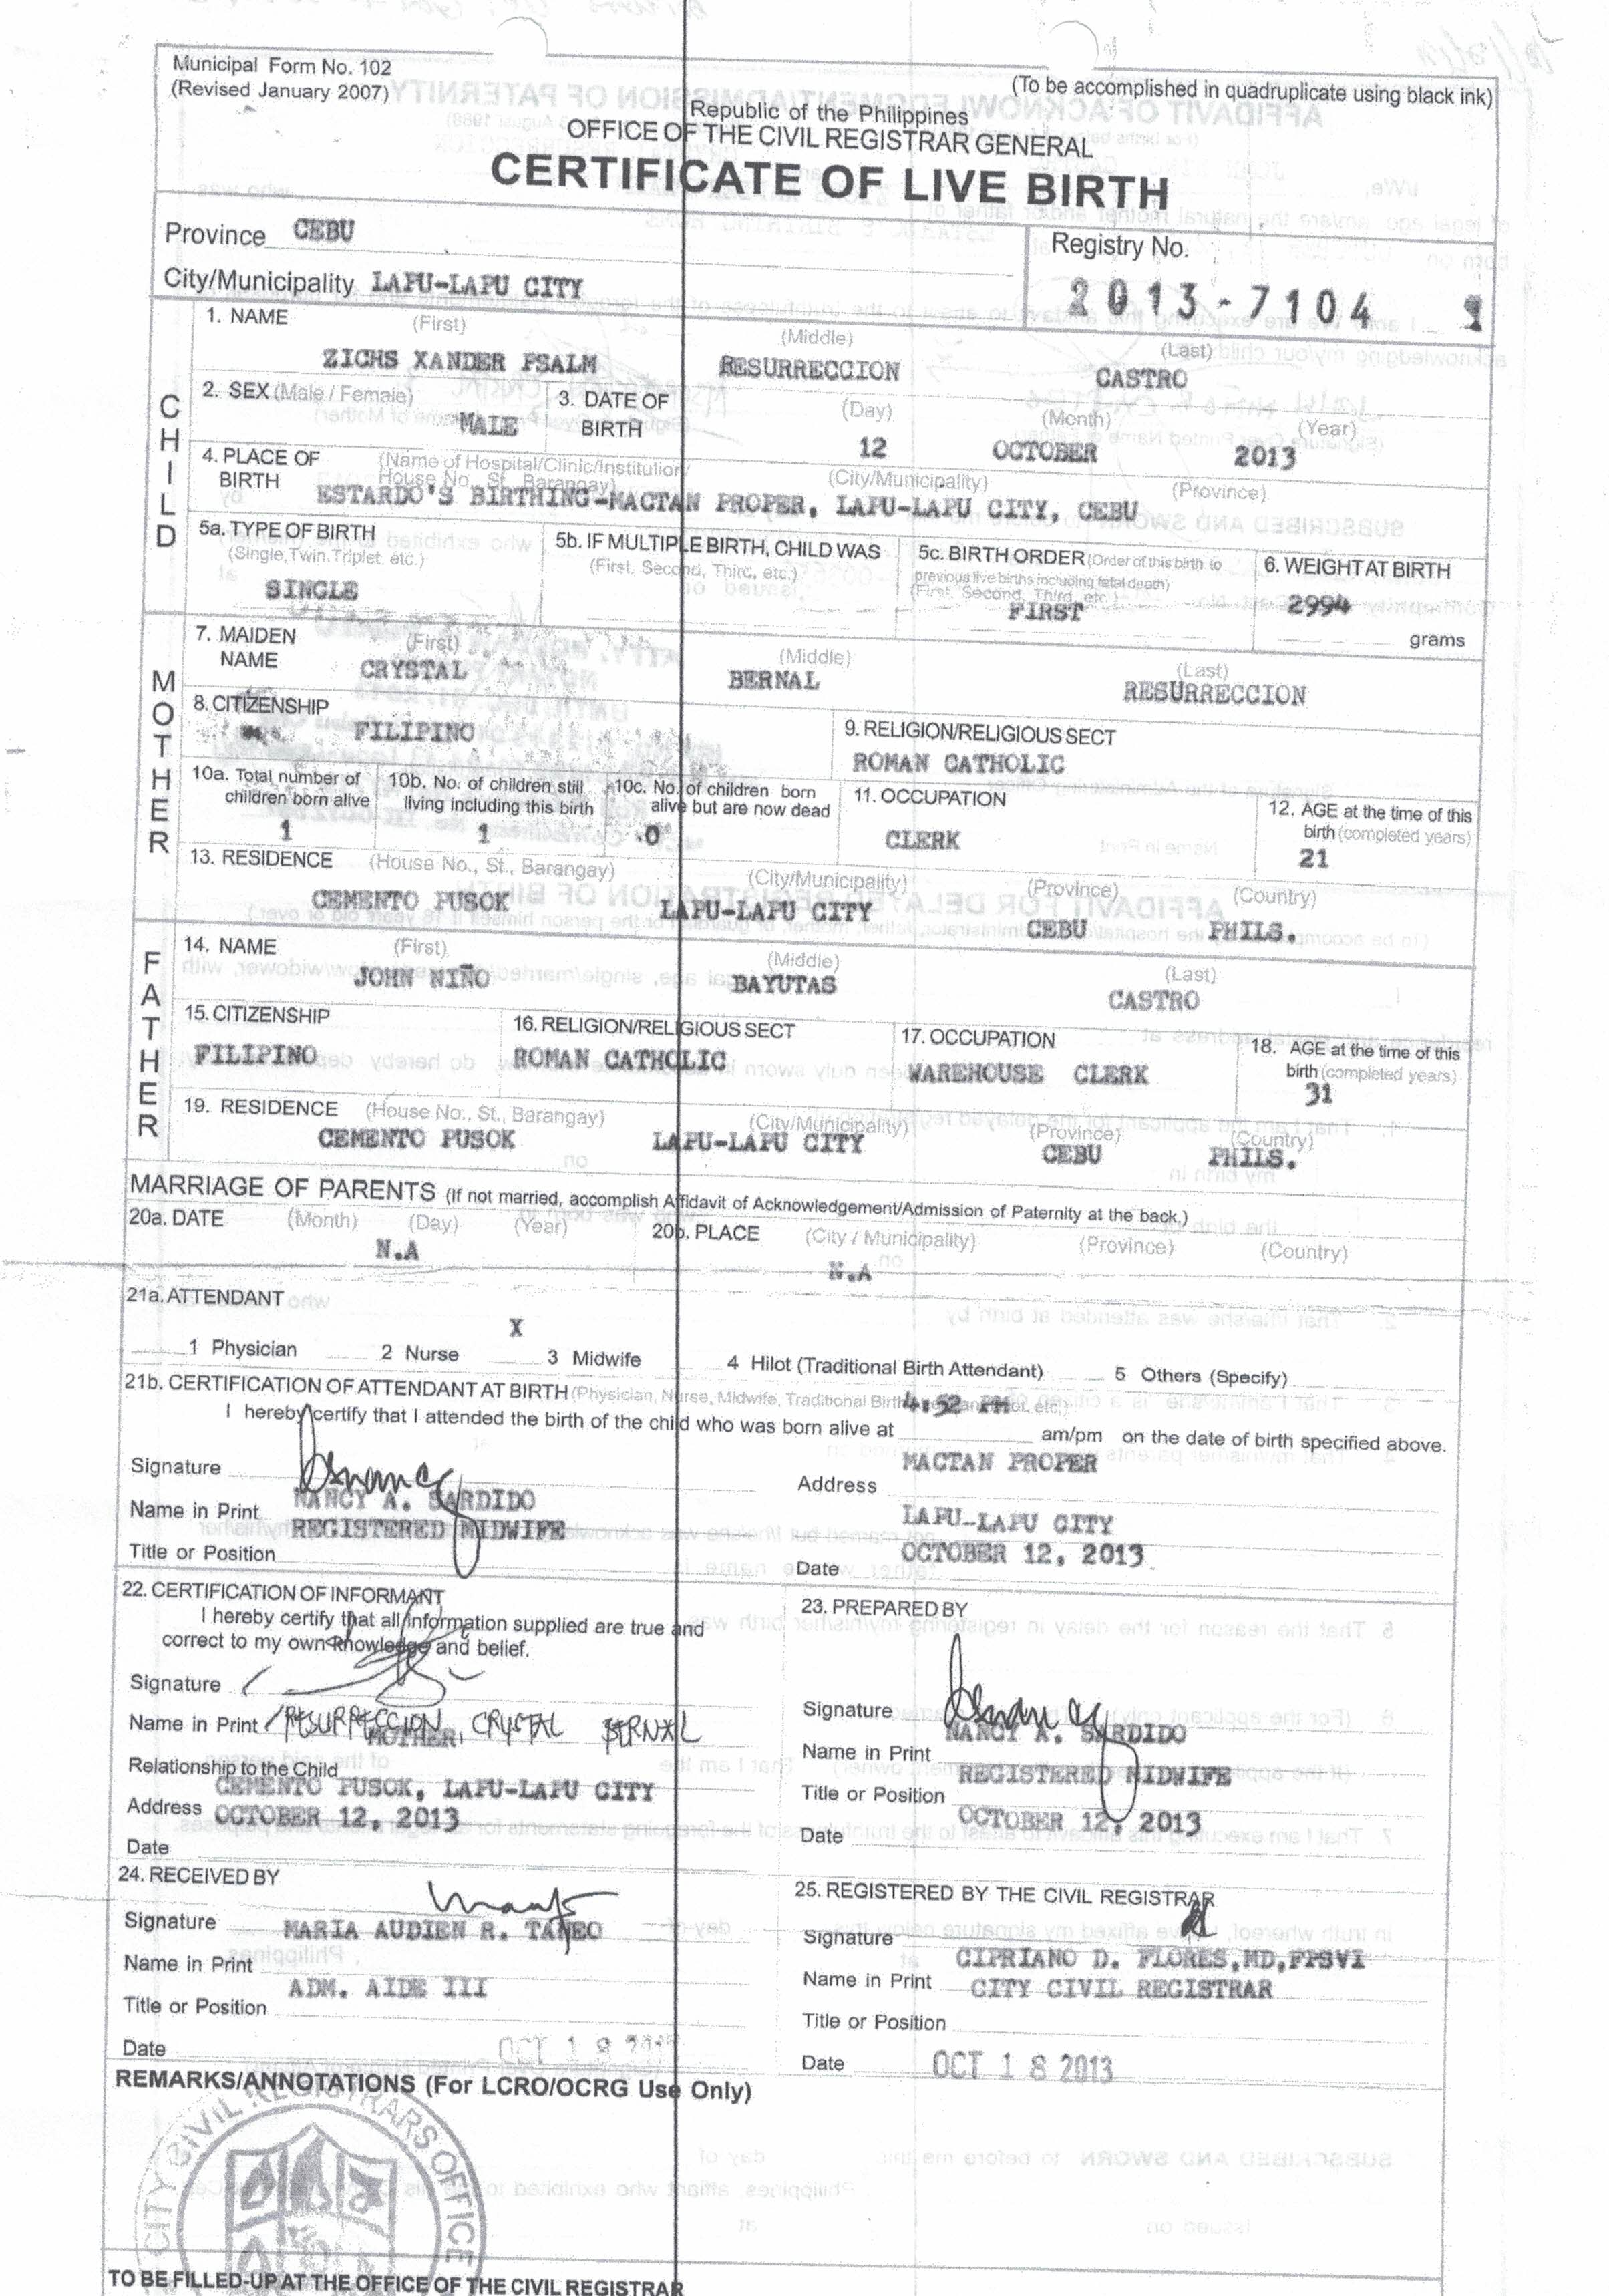 Municipal Form No. 102
(Revised January 2007)
(To be accomplished in quadruplicate using black ink)
Republic of the Philippines
OFFICE OF THE CIVIL REGISTRAR GENERAL
CERTIFICATE OF LIVE BIRTH
Province CEBU
City/Municipality LAPU-LAPU CITY
Registry No.
2013-7104 1
CHILD
1. NAME (First) (Middle) (Last)
ZICHS XANDER PSALM RESURRECCION CASTRO
2. SEX (Male / Female) MALE
3. DATE OF BIRTH (Day) (Month) (Year)
12 OCTOBER 2013
4. PLACE OF BIRTH (Name of Hospital/Clinic/Institution/ House No., St., Barangay) (City/Municipality) (Province)
ESTARDO'S BIRTHING-MACTAN PROPER, LAPU-LAPU CITY, CEBU
5a. TYPE OF BIRTH (Single, Twin, Triplet, etc.)
SINGLE
5b. IF MULTIPLE BIRTH, CHILD WAS (First, Second, Third, etc.)
5c. BIRTH ORDER (Order of this birth to previous live births including fetal death) (First, Second, Third, etc.)
FIRST
6. WEIGHT AT BIRTH
2994 grams
MOTHER
7. MAIDEN NAME (First) (Middle) (Last)
CRYSTAL BERNAL RESURRECCION
8. CITIZENSHIP
FILIPINO
9. RELIGION/RELIGIOUS SECT
ROMAN CATHOLIC
10a. Total number of children born alive
1
10b. No. of children still living including this birth
1
10c. No. of children born alive but are now dead
0
11. OCCUPATION
CLERK
12. AGE at the time of this birth (completed years)
21
13. RESIDENCE (House No., St., Barangay) (City/Municipality) (Province) (Country)
CEMENTO PUSOK LAPU-LAPU CITY CEBU PHILS.
FATHER
14. NAME (First) (Middle) (Last)
JOHN NIÑO BAYUTAS CASTRO
15. CITIZENSHIP
FILIPINO
16. RELIGION/RELIGIOUS SECT
ROMAN CATHOLIC
17. OCCUPATION
WAREHOUSE CLERK
18. AGE at the time of this birth (completed years)
31
19. RESIDENCE (House No., St., Barangay) (City/Municipality) (Province) (Country)
CEMENTO PUSOK LAPU-LAPU CITY CEBU PHILS.
MARRIAGE OF PARENTS (If not married, accomplish Affidavit of Acknowledgement/Admission of Paternity at the back.)
20a. DATE (Month) (Day) (Year)
N.A
20b. PLACE (City / Municipality) (Province) (Country)
N.A
21a. ATTENDANT
X
1 Physician 2 Nurse 3 Midwife 4 Hilot (Traditional Birth Attendant) 5 Others (Specify)
21b. CERTIFICATION OF ATTENDANT AT BIRTH (Physician, Nurse, Midwife, Traditional Birth etc.)
4:52 PM
I hereby certify that I attended the birth of the child who was born alive at am/pm on the date of birth specified above.
Signature
Name in Print NANCY A. SARDIDO
REGISTERED MIDWIFE
Title or Position
MACTAN PROPER
Address
LAPU-LAPU CITY
OCTOBER 12, 2013
Date
22. CERTIFICATION OF INFORMANT
I hereby certify that all information supplied are true and
correct to my own knowledge and belief.
Signature
Name in Print RESURRECCION, CRYSTAL BERNAL
MOTHER
Relationship to the Child
CEMENTO PUSOK, LAPU-LAPU CITY
Address OCTOBER 12, 2013
Date
23. PREPARED BY
Signature
NANCY A. SARDIDO
Name in Print
REGISTERED MIDWIFE
Title or Position
OCTOBER 12, 2013
Date
24. RECEIVED BY
Signature
MARIA AUDIEN R. TAÑEO
Name in Print
ADM. AIDE III
Title or Position
Date OCT 18
25. REGISTERED BY THE CIVIL REGISTRAR
Signature
CIPRIANO D. FLORES, MD, FPSVI
Name in Print CITY CIVIL REGISTRAR
Title or Position
Date OCT 18 2013
REMARKS/ANNOTATIONS (For LCRO/OCRG Use Only)
CITY CIVIL REGISTRARS OFFICE
TO BE FILLED-UP AT THE OFFICE OF THE CIVIL REGISTRAR